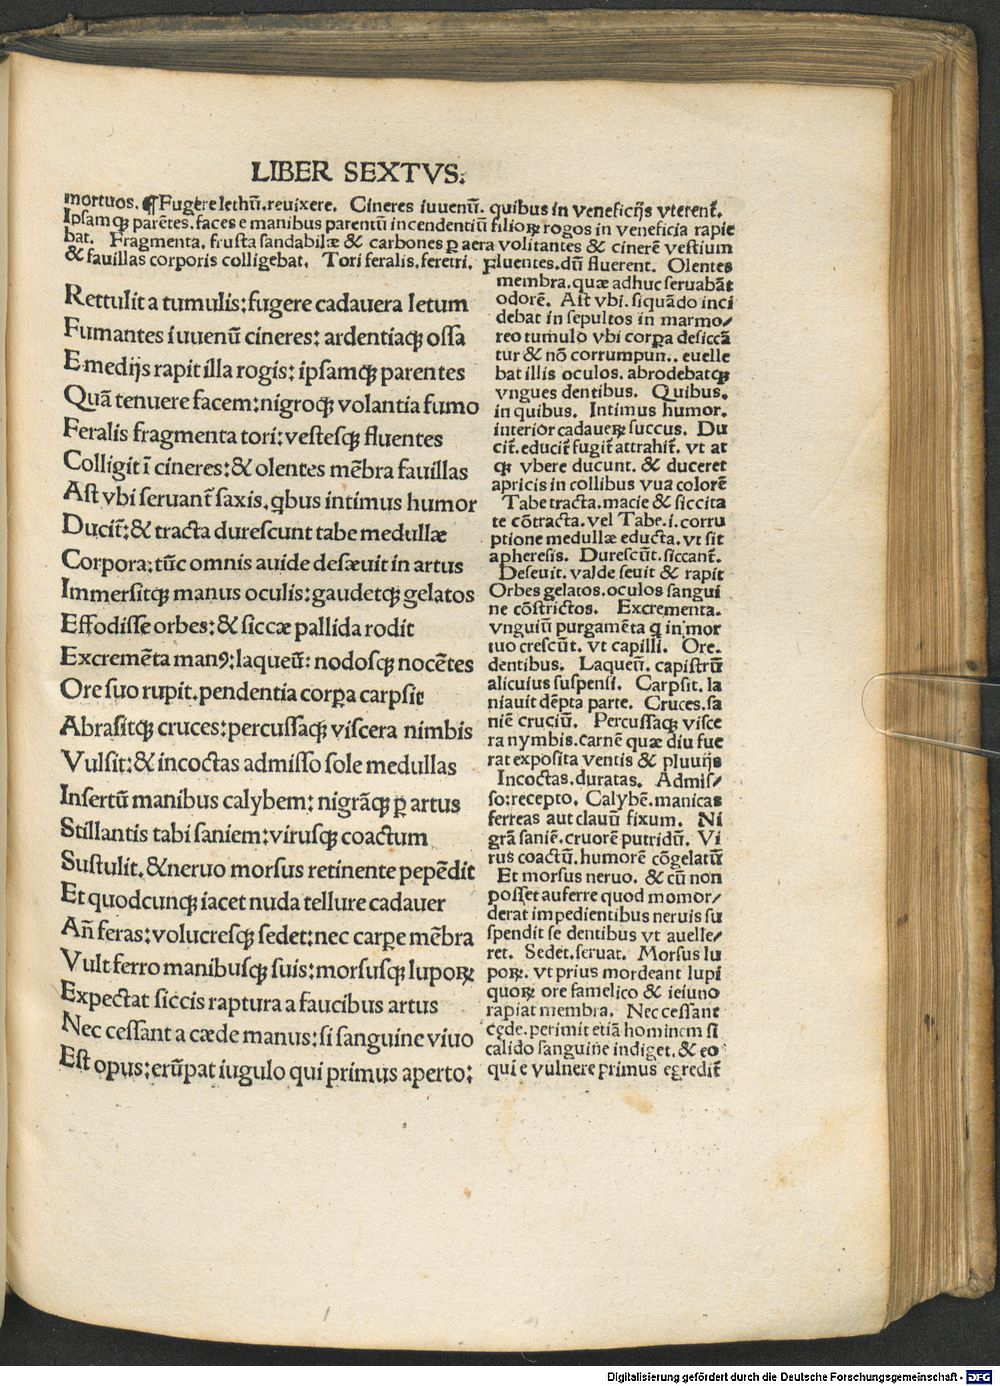 LIBER SEXTVS.
mortuos. ¶Fugere lethū.reuixere. Cineres iuuenū. quibus in veneficijs vterent᷑.
Ipsamqꝫ parētes.faces e manibus parentū incendentiū filioꝝ rogos in veneficia rapie
bat. Fragmenta. frusta sandabilæ & carbones ꝑ aera volitantes & cinerē vestium
& fauillas corporis colligebat. Tori feralis.feretri. fluentes.dū fluerent. Olentes
Rettulit a tumulis:fugere cadauera letum
Fumantes iuuenū cineres: ardentiaqꝫ ossa
E medijs rapit illa rogis: ipsamqꝫ parentes
Quā tenuere facem:nigroqꝫ volantia fumo
Feralis fragmenta tori:vestesqꝫ fluentes
Colligit ī cineres:& olentes mēbra fauillas
Ast vbi seruant᷑ saxis.qbus intimus humor
Ducit᷑:& tracta durescunt tabe medullæ
Corpora:tūc omnis auide desæuit in artus
Immersitqꝫ manus oculis:gaudetqꝫ gelatos
Effodisse orbes:& siccæ pallida rodit
Excremēta manꝰ:laqueū: nodosqꝫ nocētes
Ore suo rupit.pendentia corꝑa carpsit
Abrasitqꝫ cruces:percussaqꝫ viscera nimbis
Vulsit:& incoctas admisso sole medullas
Insertū manibus calybem: nigrāqꝫ ꝑ artus
Stillantis tabi saniem:virusqꝫ coactum
Sustulit.& neruo morsus retinente pepēdit
Et quodcunqꝫ iacet nuda tellure cadauer
Añ feras:volucresqꝫ sedet:nec carꝑe mēbra
Vult ferro manibusqꝫ suis:morsusqꝫ lupoꝝ
Expectat siccis raptura a faucibus artus
Nec cessant a cæde manus:si sanguine viuo
Est opus:erūpat iugulo qui primus aperto:
membra.quæ adhuc seruabāt
odorē. Ast vbi.siquādo inci
debat in sepultos in marmo/
reo tumulo vbi corꝑa desiccā
tur & nō corrumpun.. euelle
bat illis oculos. abrodebatqꝫ
vngues dentibus. Quibus.
in quibus. Intimus humor.
interior cadaueꝝ succus. Du
cit᷑.educit᷑ fugit᷑ attrahit᷑. vt at
qꝫ vbere ducunt. & duceret
apricis in collibus vua colorē
Tabe tracta.macie & siccita
te cōtracta.vel Tabe.i.corru
ptione medullæ educta.vt sit
apheresis. Durescūt.siccant᷑.
Deseuit.valde seuit & rapit
Orbes gelatos.oculos sangui
ne cōstrictos. Excrementa.
vnguiū purgamēta q in mor
tuo crescūt. vt capilli. Ore.
dentibus. Laqueū. capistrū
alicuius suspensi. Carpsit. la
niauit dēpta parte. Cruces.sa
niē cruciū. Percussaqꝫ visce
ra nymbis.carnē quæ diu fue
rat exposita ventis & pluuijs
Incoctas.duratas. Admis/
so:recepto. Calybē.manicas
ferreas aut clauū fixum. Ni
grā saniē.cruorē putridū. Vi
rus coactū.humorē cōgelatū
Et morsus neruo. & cū non
posset auferre quod momor/
derat impedientibus neruis su
spendit se dentibus vt auelle/
ret. Sedet.seruat. Morsus lu
poꝝ. vt prius mordeant lupi
quoꝝ ore famelico & ieiuno
rapiat membra. Nec cessant
cęde.perimit etiā hominem si
calido sanguine indiget.& eo
qui e vulnere primus egredit᷑
Digitalisierung gefördert durch die Deutsche Forschungsgemeinschaft - DFG